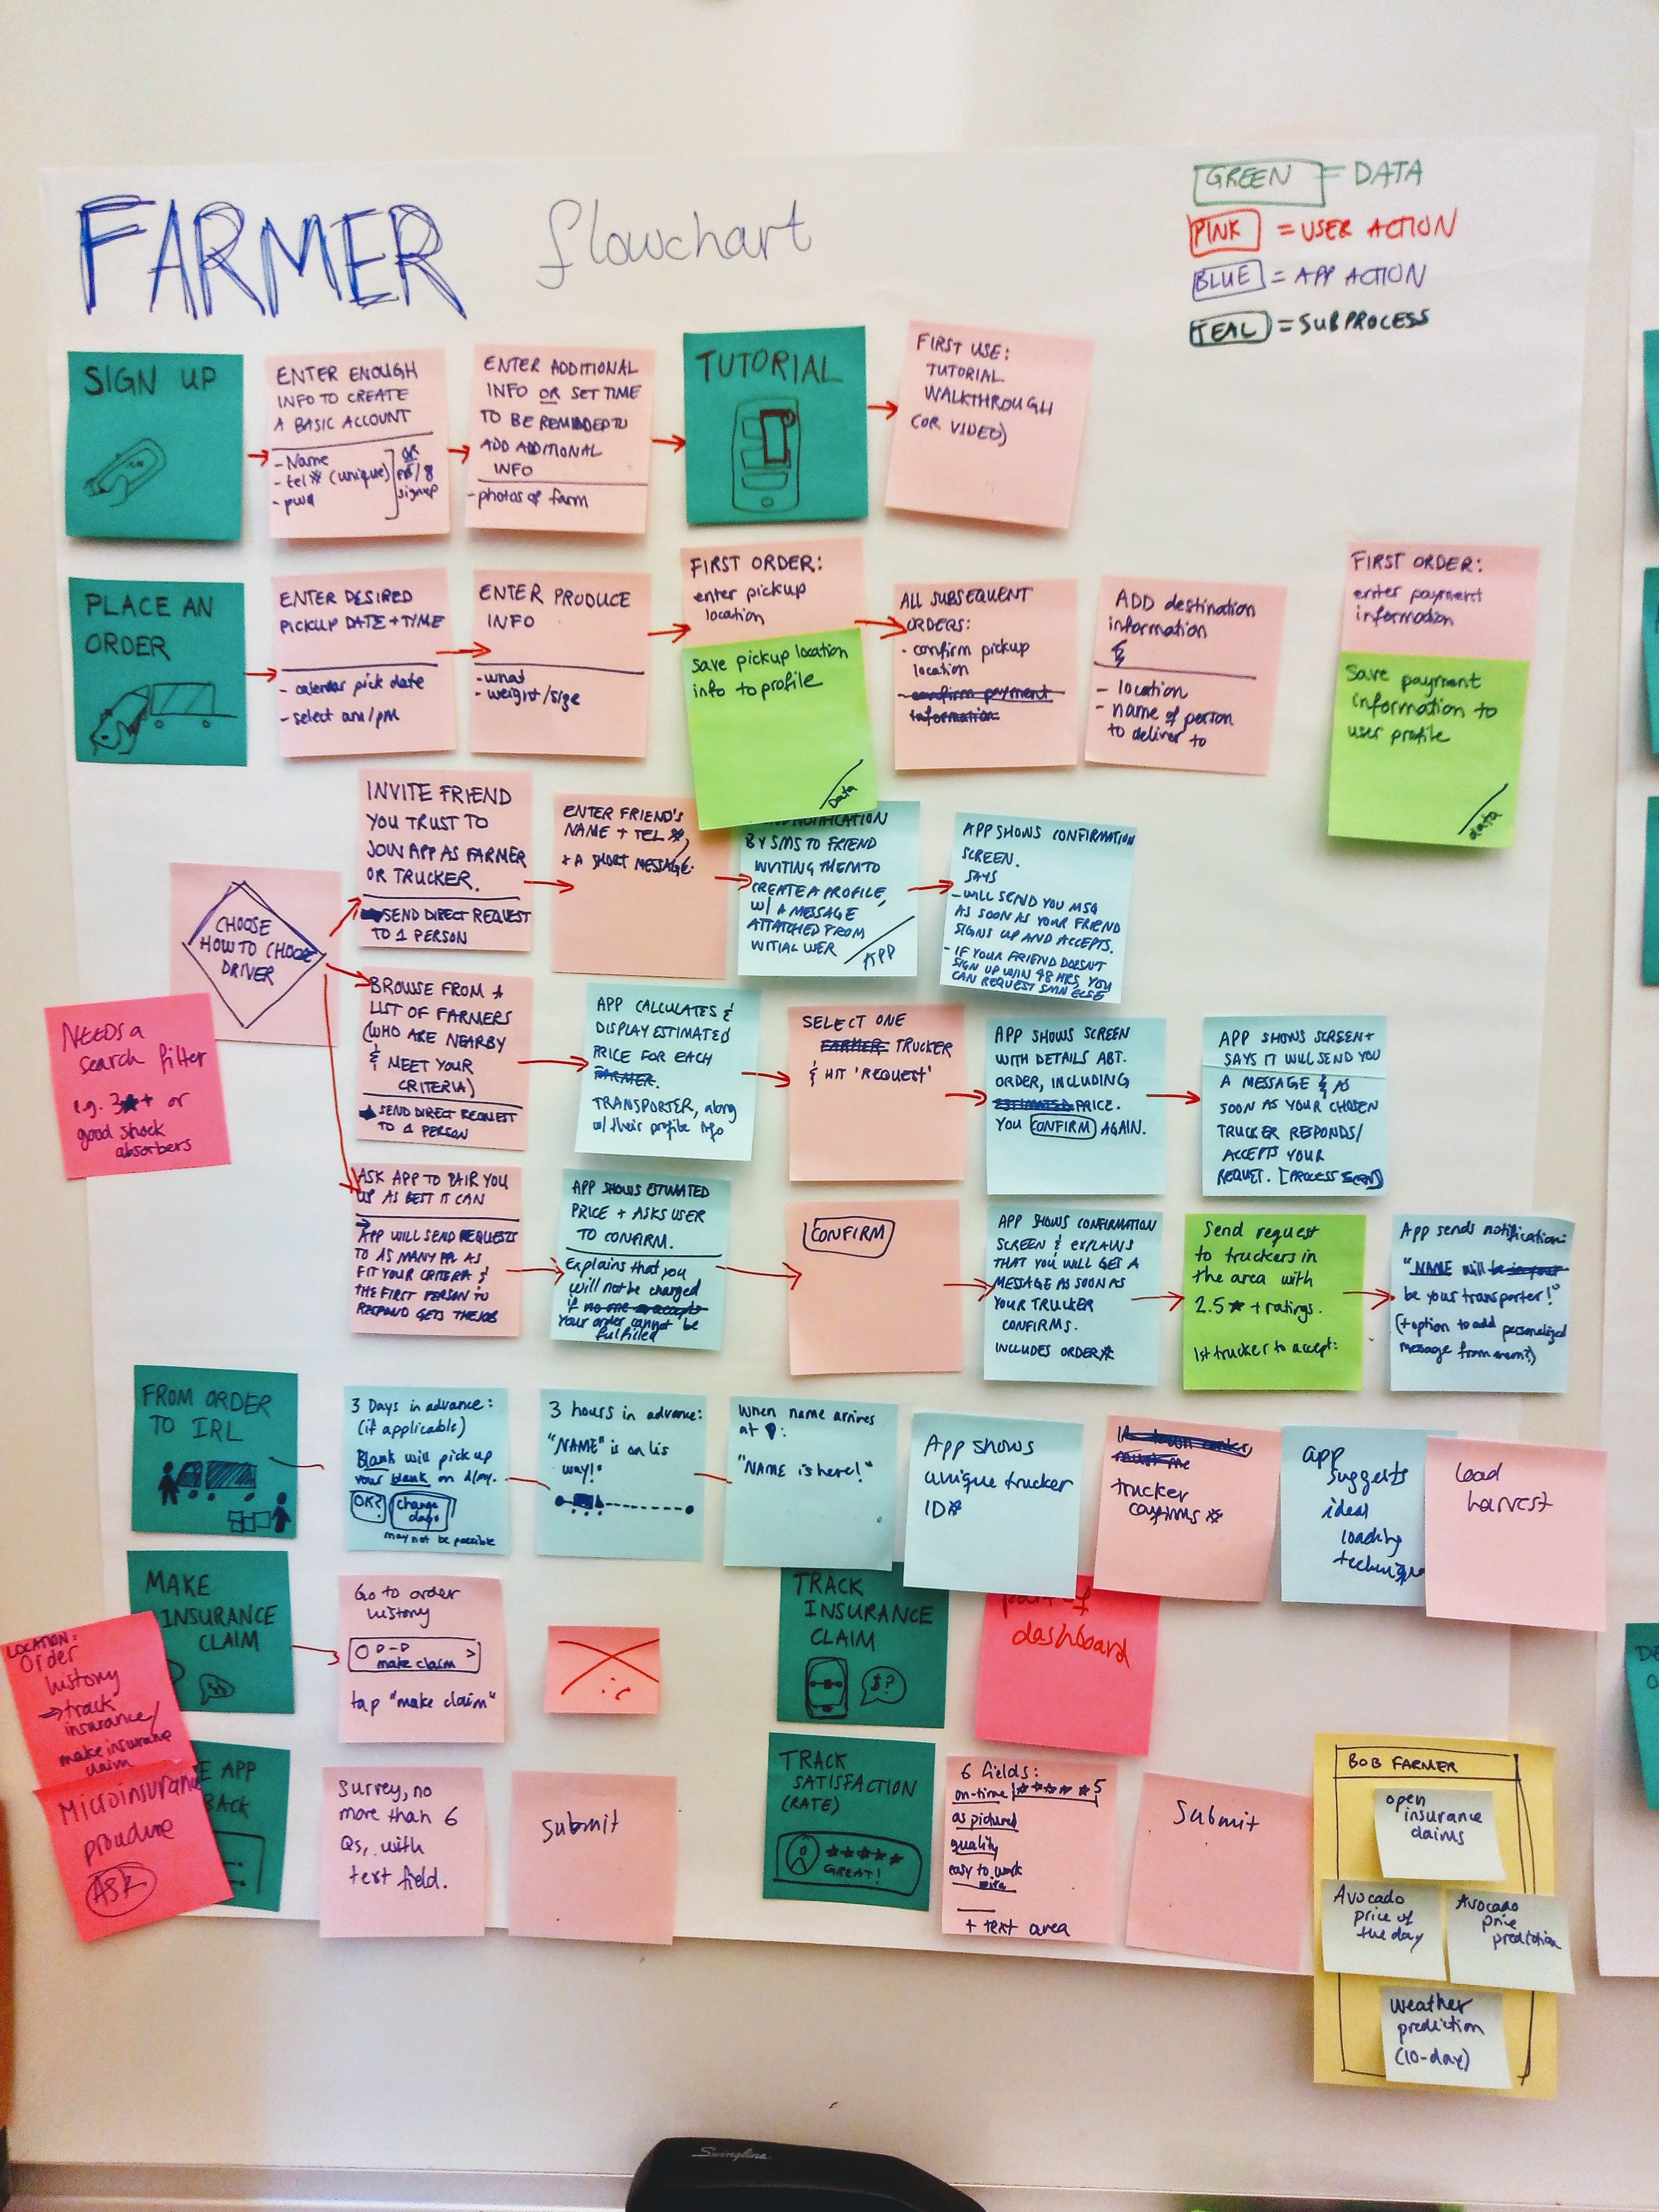 FARMER flowchart
GREEN = DATA
PINK = USER ACTION
BLUE = APP ACTION
TEAL = SUBPROCESS
SIGN UP
ENTER ENOUGH
INFO TO CREATE
A BASIC ACCOUNT
- Name
- tel# (unique)
- pwd
OR
signup
ENTER ADDITIONAL
INFO OR SET TIME
TO BE REMINDED TO
ADD ADDITIONAL
INFO
- photos of farm
TUTORIAL
FIRST USE:
TUTORIAL
WALKTHROUGH
(OR VIDEO)
PLACE AN
ORDER
ENTER DESIRED
PICKUP DATE + TIME
- calendar pick date
- select am/pm
ENTER PRODUCE
INFO
- what
- weight/size
FIRST ORDER:
enter pickup
location
Save pickup location
info to profile
data
ALL SUBSEQUENT
ORDERS:
- confirm pickup
location
- confirm payment
information
ADD destination
information
- location
- name of person
to deliver to
FIRST ORDER:
enter payment
information
Save payment
information to
user profile
data
CHOOSE
HOW TO CHOOSE
DRIVER
INVITE FRIEND
YOU TRUST TO
JOIN APP AS FARMER
OR TRUCKER.
SEND DIRECT REQUEST
TO 1 PERSON
ENTER FRIEND'S
NAME + TEL #,
+ A SHORT MESSAGE.
NOTIFICATION
BY SMS TO FRIEND
INVITING THEM TO
CREATE A PROFILE,
W/ A MESSAGE
ATTATCHED FROM
INITIAL USER
APP
APP SHOWS CONFIRMATION
SCREEN.
SAYS
- WILL SEND YOU MSG
AS SOON AS YOUR FRIEND
SIGNS UP AND ACCEPTS.
- IF YOUR FRIEND DOESN'T
SIGN UP W/IN 48 HRS, YOU
CAN REQUEST SMN ELSE
NEEDS a
search filter
e.g. 3★+ or
good shock
absorbers
BROWSE FROM A
LIST OF FARMERS
(WHO ARE NEARBY
& MEET YOUR
CRITERIA)
SEND DIRECT REQUEST
TO 1 PERSON
APP CALCULATES &
DISPLAY ESTIMATED
PRICE FOR EACH
FARMER.
TRANSPORTER, along
w/ their profile info
SELECT ONE
FARMER TRUCKER
& HIT 'REQUEST'
APP SHOWS SCREEN
WITH DETAILS ABT.
ORDER, INCLUDING
ESTIMATED PRICE.
YOU CONFIRM AGAIN.
APP SHOWS SCREEN +
SAYS IT WILL SEND YOU
A MESSAGE & AS
SOON AS YOUR CHOSEN
TRUCKER RESPONDS/
ACCEPTS YOUR
REQUST. [PROCESS
ASK APP TO PAIR YOU
UP AS BEST IT CAN
APP WILL SEND REQUESTS
TO AS MANY PPL AS
FIT YOUR CRITERIA &
THE FIRST PERSON TO
RESPOND GETS THE JOB
APP SHOWS ESTIMATED
PRICE + ASKS USER
TO CONFIRM.
Explains that you
will not be charged
if no one accepts
your order cannot be
fulfilled
CONFIRM
APP SHOWS CONFIRMATION
SCREEN & EXPLAINS
THAT YOU WILL GET A
MESSAGE AS SOON AS
YOUR TRUCKER
CONFIRMS.
INCLUDES ORDER#
Send request
to truckers in
the area with
2.5★ + ratings.
1st trucker to accept:
App sends notification:
"NAME will be in your
be your transporter!"
(+ option to add personalized
message from
FROM ORDER
TO IRL
3 Days in advance:
(if applicable)
Blank will pick up
your blank on d/m/y.
OK? change
days
may not be possible
3 hours in advance:
"NAME" is on his
way!"
When name arrives
at :
"NAME is here!"
App shows
unique trucker
ID#
trucker
confirms #
app
suggests
ideal
loading
technique
load
harvest
MAKE
INSURANCE
CLAIM
LOCATION:
Order
history
→ track
insurance/
make insurance
claim
Go to order
history
make claim >
tap "make claim"
TRACK
INSURANCE
CLAIM
$?
part of
dashboard
Microinsurance
ASK
E APP
BACK
Survey, no
more than 6
Qs, with
text field.
submit
TRACK
SATISFACTION
(RATE)
★★★★★
GREAT!
6 fields:
on-time ★★★★★ 5
as pictured
quality
easy to work
with
+ text area
Submit
BOB FARMER
open
insurance
claims
Avocado
price of
the day
Avocado
price
prediction
weather
prediction
(10-day)
Swingline